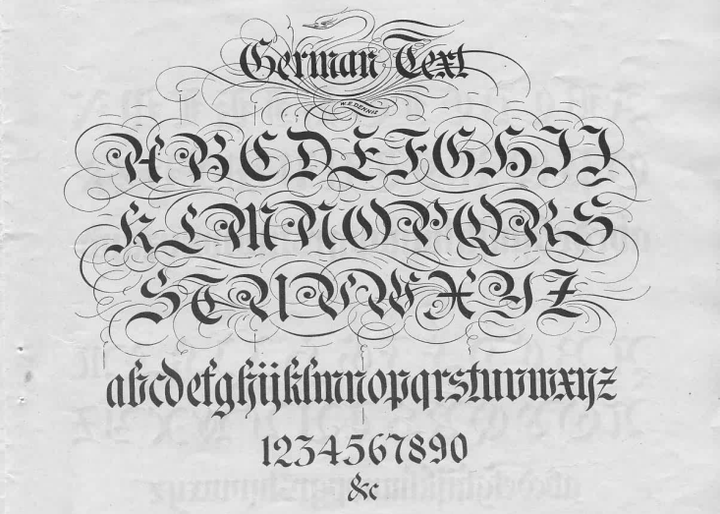 German Text
W. E. DENNIS
ABCDEFGHIJ
KLMNOPQRS
STUVWXYZ
abcdefghijklmnopqrstuvwxyz
1234567890
&c